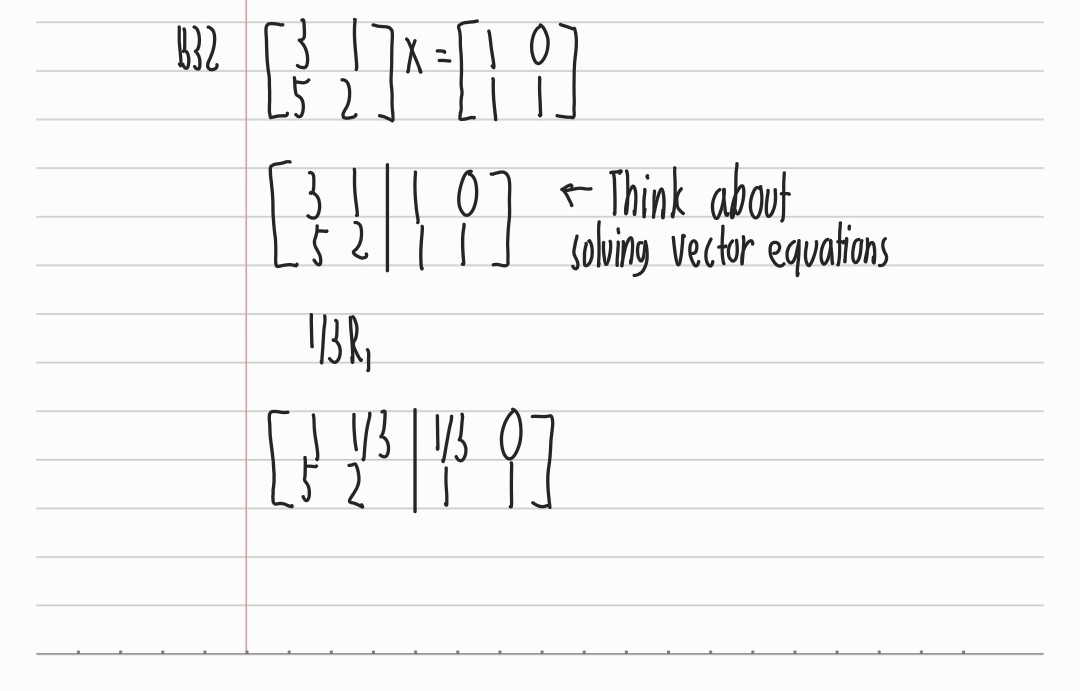 B32 [3 1] X = [1 0]
[5 2] [1 1]
[3 1 | 1 0] ← Think about
[5 2 | 1 1] solving vector equations
1/3R₁
[1 1/3 | 1/3 0]
[5 2 | 1 1]